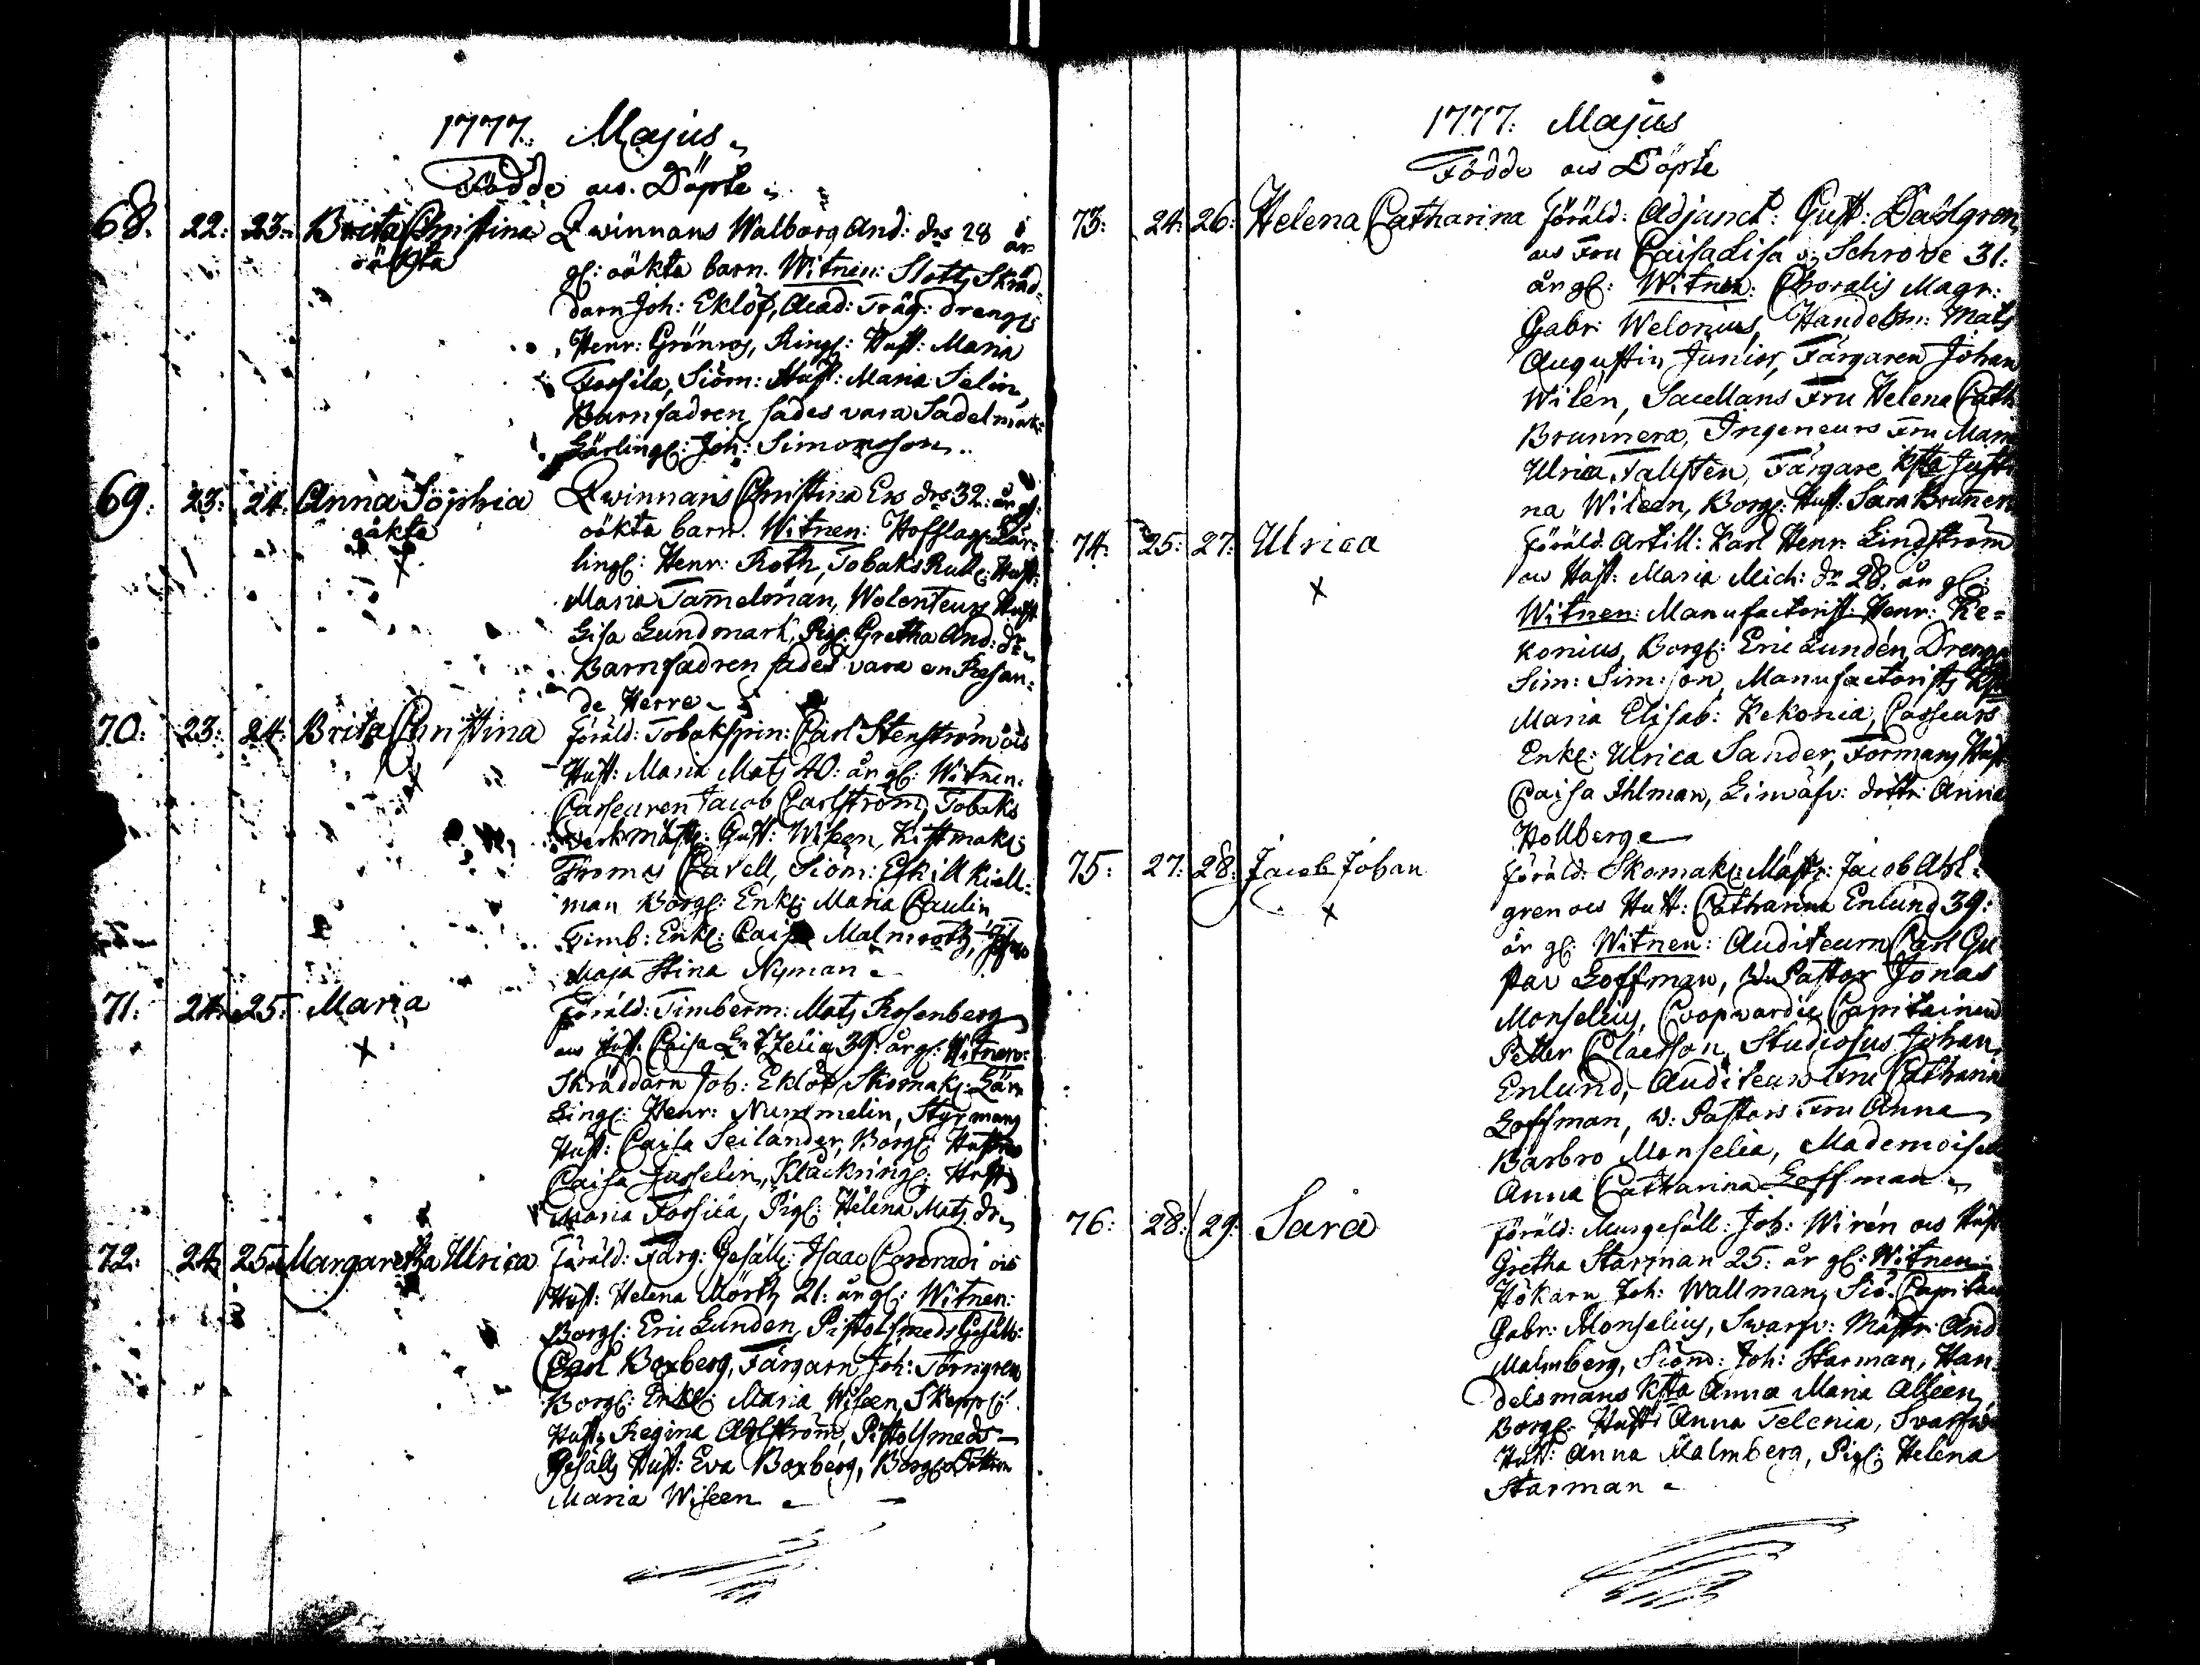 1777. Majus
Födde och Döpte
68. 22: 23: Brita Christina Qwinnans Walborg And: drs 28 år
oäkta gl: oäkta barn. Witnen: Slotts Skräd-
darn Joh: Eklöf, Acad: Träg: drengs
Henr: Grönros, Ringl: Hust: Maria
Forsila, Siöm: Hust: Maria Selin,
Barnfadren sades vara Sadelmak:
Lärlingl: Joh: Simonsson.
69. 23: 24. Anna Sophia Qwinnans Christina Ers drs 32: år gl:
oäkta oäkta barn. Witnen: Hofslag: Lär-
x lingl: Henr: Roth, Tobaks Hust:
Maria Tam̄elinan, Wolenteurs Hust
Lisa Lundmark, Pigl: Gretha And: dr
Barnfadren sades vara en Resan-
de Herre
70. 23: 24. Brita Christina Föräld: Tobakspin: Carl Stenström och
x Hust: Maria Mats 40: år gl: Witnen:
Casseuren Jacob Carlström, Tobaks
werkmäst: Gust: Wiseen, Kistmak:
Thomas Cavell, Siöm: Eskill Kiell-
man Borgl: Enkl: Maria Paulin
Timb: Enkl: Caisa Malmros,
Maja Stina Nyman
71. 24. 25. Maria Föräld: Timberm: Mats Rosenberg
x och Hust: Caisa 39: år gl: Witnen:
Skräddarn Joh: Eklöf, Skomak: Lär-
lingl: Henr: Num̄elin, Styrmans
Hust: Caisa Seilander, Borgl: Hustro
Caisa Jusselin, Klåckringl: Hust
Maria Forsila, Pigl: Helena Mats dr
72. 24. 25. Margaretha Ulrica Föräld: Färg: Gesäll: Isaac Conradi och
Hust: Helena Mörtz 21: år gl: Witnen:
Borgl: Eric Lunden, Pistolsmeds Gesäll:
Carl Boxberg, Färgarn Joh: Törngren
Borgl: Enkl: Maria Wiseen, Skepp:
Hust: Regina Ahlström, Pistolsmeds
Gesälls Hust: Eva Boxberg, Borgl: Dottren
Maria Wiseen
1777: Majus
Födde och Döpte
73: 24: 26: Helena Catharina Föräld: Adjunct: Gust: Dahlgren
och Fru Caisa Lisa Schrode 31:
år gl: Witnen: Choralis Magr:
Gabr: Welonius, Handelsm: Mats
Augustin Junior, Färgaren Johan
Wilén, Sacellans Fru Helena Cath
Brunnera, Ingeneurs Fru Maria
Ulrica Falssten, Färgare Justi
na Wileen, Borgl: Hust: Sara Brunnera
74. 25: 27: Ulrica Föräld: Artill: Karl Henr: Lindström
x och Hust: Maria Mich: dr 28. år gl:
Witnen: Manufactorist: Henr: Ke-
konius, Borgl: Eric Lundén, Drengs
Sim: Sim: son, Manufactorists
Maria Elisab: Kekonia, Casseurs
Enkl: Ulrica Sander, Formans Hust
Caisa Ihlman, Linwäfv: dottr: Anna
Hollberg
75. 27: 28: Jacob Johan Föräld: Skomak: Mäst: Jacob Ahl-
x gren och Hust: Catharina Enlund 39:
år gl: Witnen: Auditeurn Carl Gu
stav Goffman, Pastor Jonas
Monselius, Coopvardie Capitainen
Petter Claesson, Studiosus Johan
Enlund, Auditeurs Fru Catharina
Goffman, V: Pastors Fru Anna
Barbro Monselia, Mademoiselle
Anna Catharina Goffman
76: 28: 29: Sara Föräld: Murgesäll: Joh: Wirén och Hust
Gretha Starman 25: år gl: Witnen:
Hökarn Joh: Wallman, Siö-Capitain
Gabr: Monselius, Swarfv: Mästr: And
Malmberg, Siöm: Joh: Starman, Han-
delsmans Anna Maria Alleen,
Borgl: Hust: Anna Telenia, Svarfv:
Hust: Anna Malmberg, Pigl: Helena
Starman